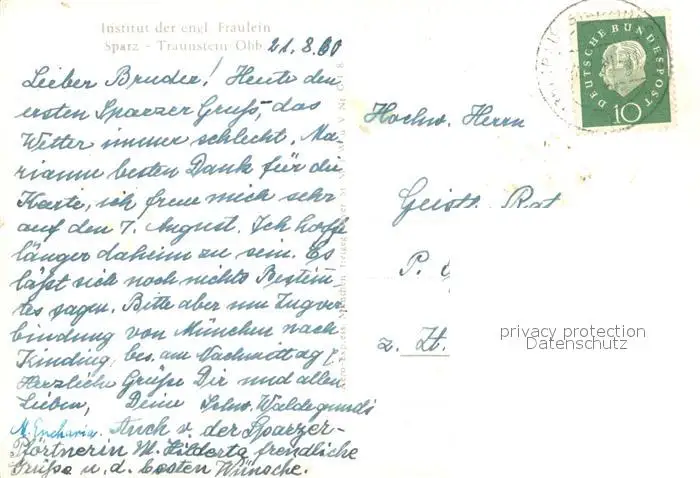 Institut der engl. Fräulein
Sparz - Traunstein Obb.
21.8.60
Lieber Bruder! Heute den
ersten Sparzer Gruß, das
Wetter immer schlecht. Ma-
rianne besten Dank für die
Karte, ich freue mich sehr
auf den 7. August. Ich hoffe
länger daheim zu sein. Es
läßt sich noch nichts Bestim-
tes sagen. Bitte aber um Zugver-
bindung von München nach
Kinding, bes. am Nachmittag!
Herzliche Grüße Dir und allen
Lieben, Deine Schw. Waldegundis
M. Eucharia. Auch v. der Sparzer-
Pförtnerin M. Hilderta freundliche
Grüße u. d. besten Wünsche.
DEUTSCHE BUNDESPOST
10
Hochw. Herrn
Geistl. Rat
P.
z. Zt.
privacy protection
Datenschutz